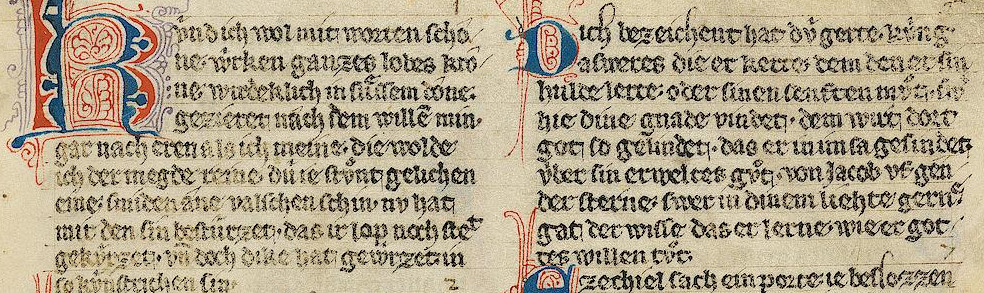 Kvnd ich wol mit worten scho
ne· wrken ganzes lobes kro
ne· wirdeklich in sůssem done·
gezieret nach dem willē min·
gar nach eren als ich meine· die wolde
ich der megde reine· dü ie stůnt gelichen
eine· sunden ane valschen schin· ny hat
mir den sin besturzet· das ir lop noch stet
gekvrzet· vn̄ doch dike hat gewrzet in
so kvnstrichen sin·
Dich bezeichent hat dv̓ gerte· kv̓nig
asweres die er kerte· dem den er sin
hulde lerte· oder sinen senften můt· swē
hie dine gnade vindet· dem wirt dort
got so gelindet· das er in im sa gesindet·
vber sin erweltes gůt· von Jacob vf gen
der sterne· swer in dinem liehte gerne
gat der wisse das er lerne· wie er got
tes willen tůt·
Ezechiel sach ein porte· ie beslozzen